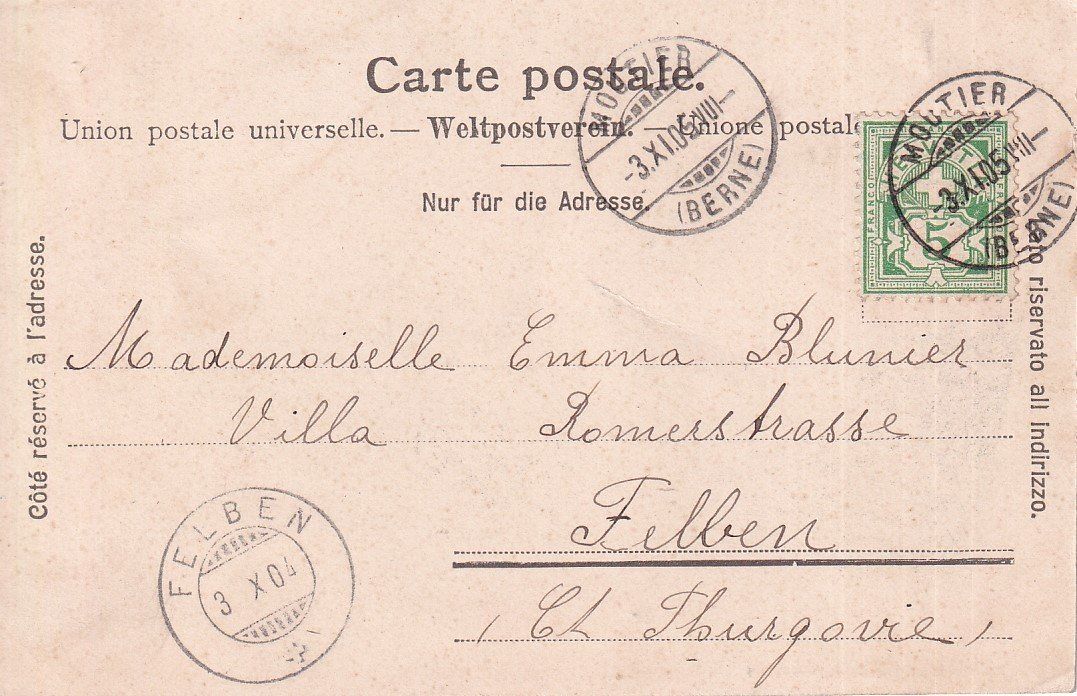 Carte postale.
Union postale universelle. — Weltpostverein. — Unione postale
Nur für die Adresse.
Côté réservé à l'adresse.
riservato all Indirizzo.
MOUTIER
-3.XI.05.VIII-
(BERNE)
MOUTIER
-3.XI.05.VIII-
(BERNE)
FRANCO
5
Mademoiselle Emma Blunier
Villa Romerstrasse
Felben
(Ct Thurgovie)
FELBEN
3 X 04